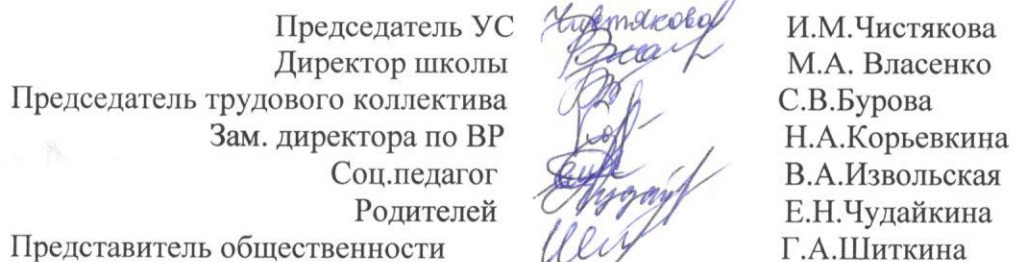 Председатель УС Чистякова И.М.Чистякова
Директор школы М.А. Власенко
Председатель трудового коллектива С.В.Бурова
Зам. директора по ВР Н.А.Корьевкина
Соц.педагог В.А.Извольская
Родителей Е.Н.Чудайкина
Представитель общественности Г.А.Шиткина